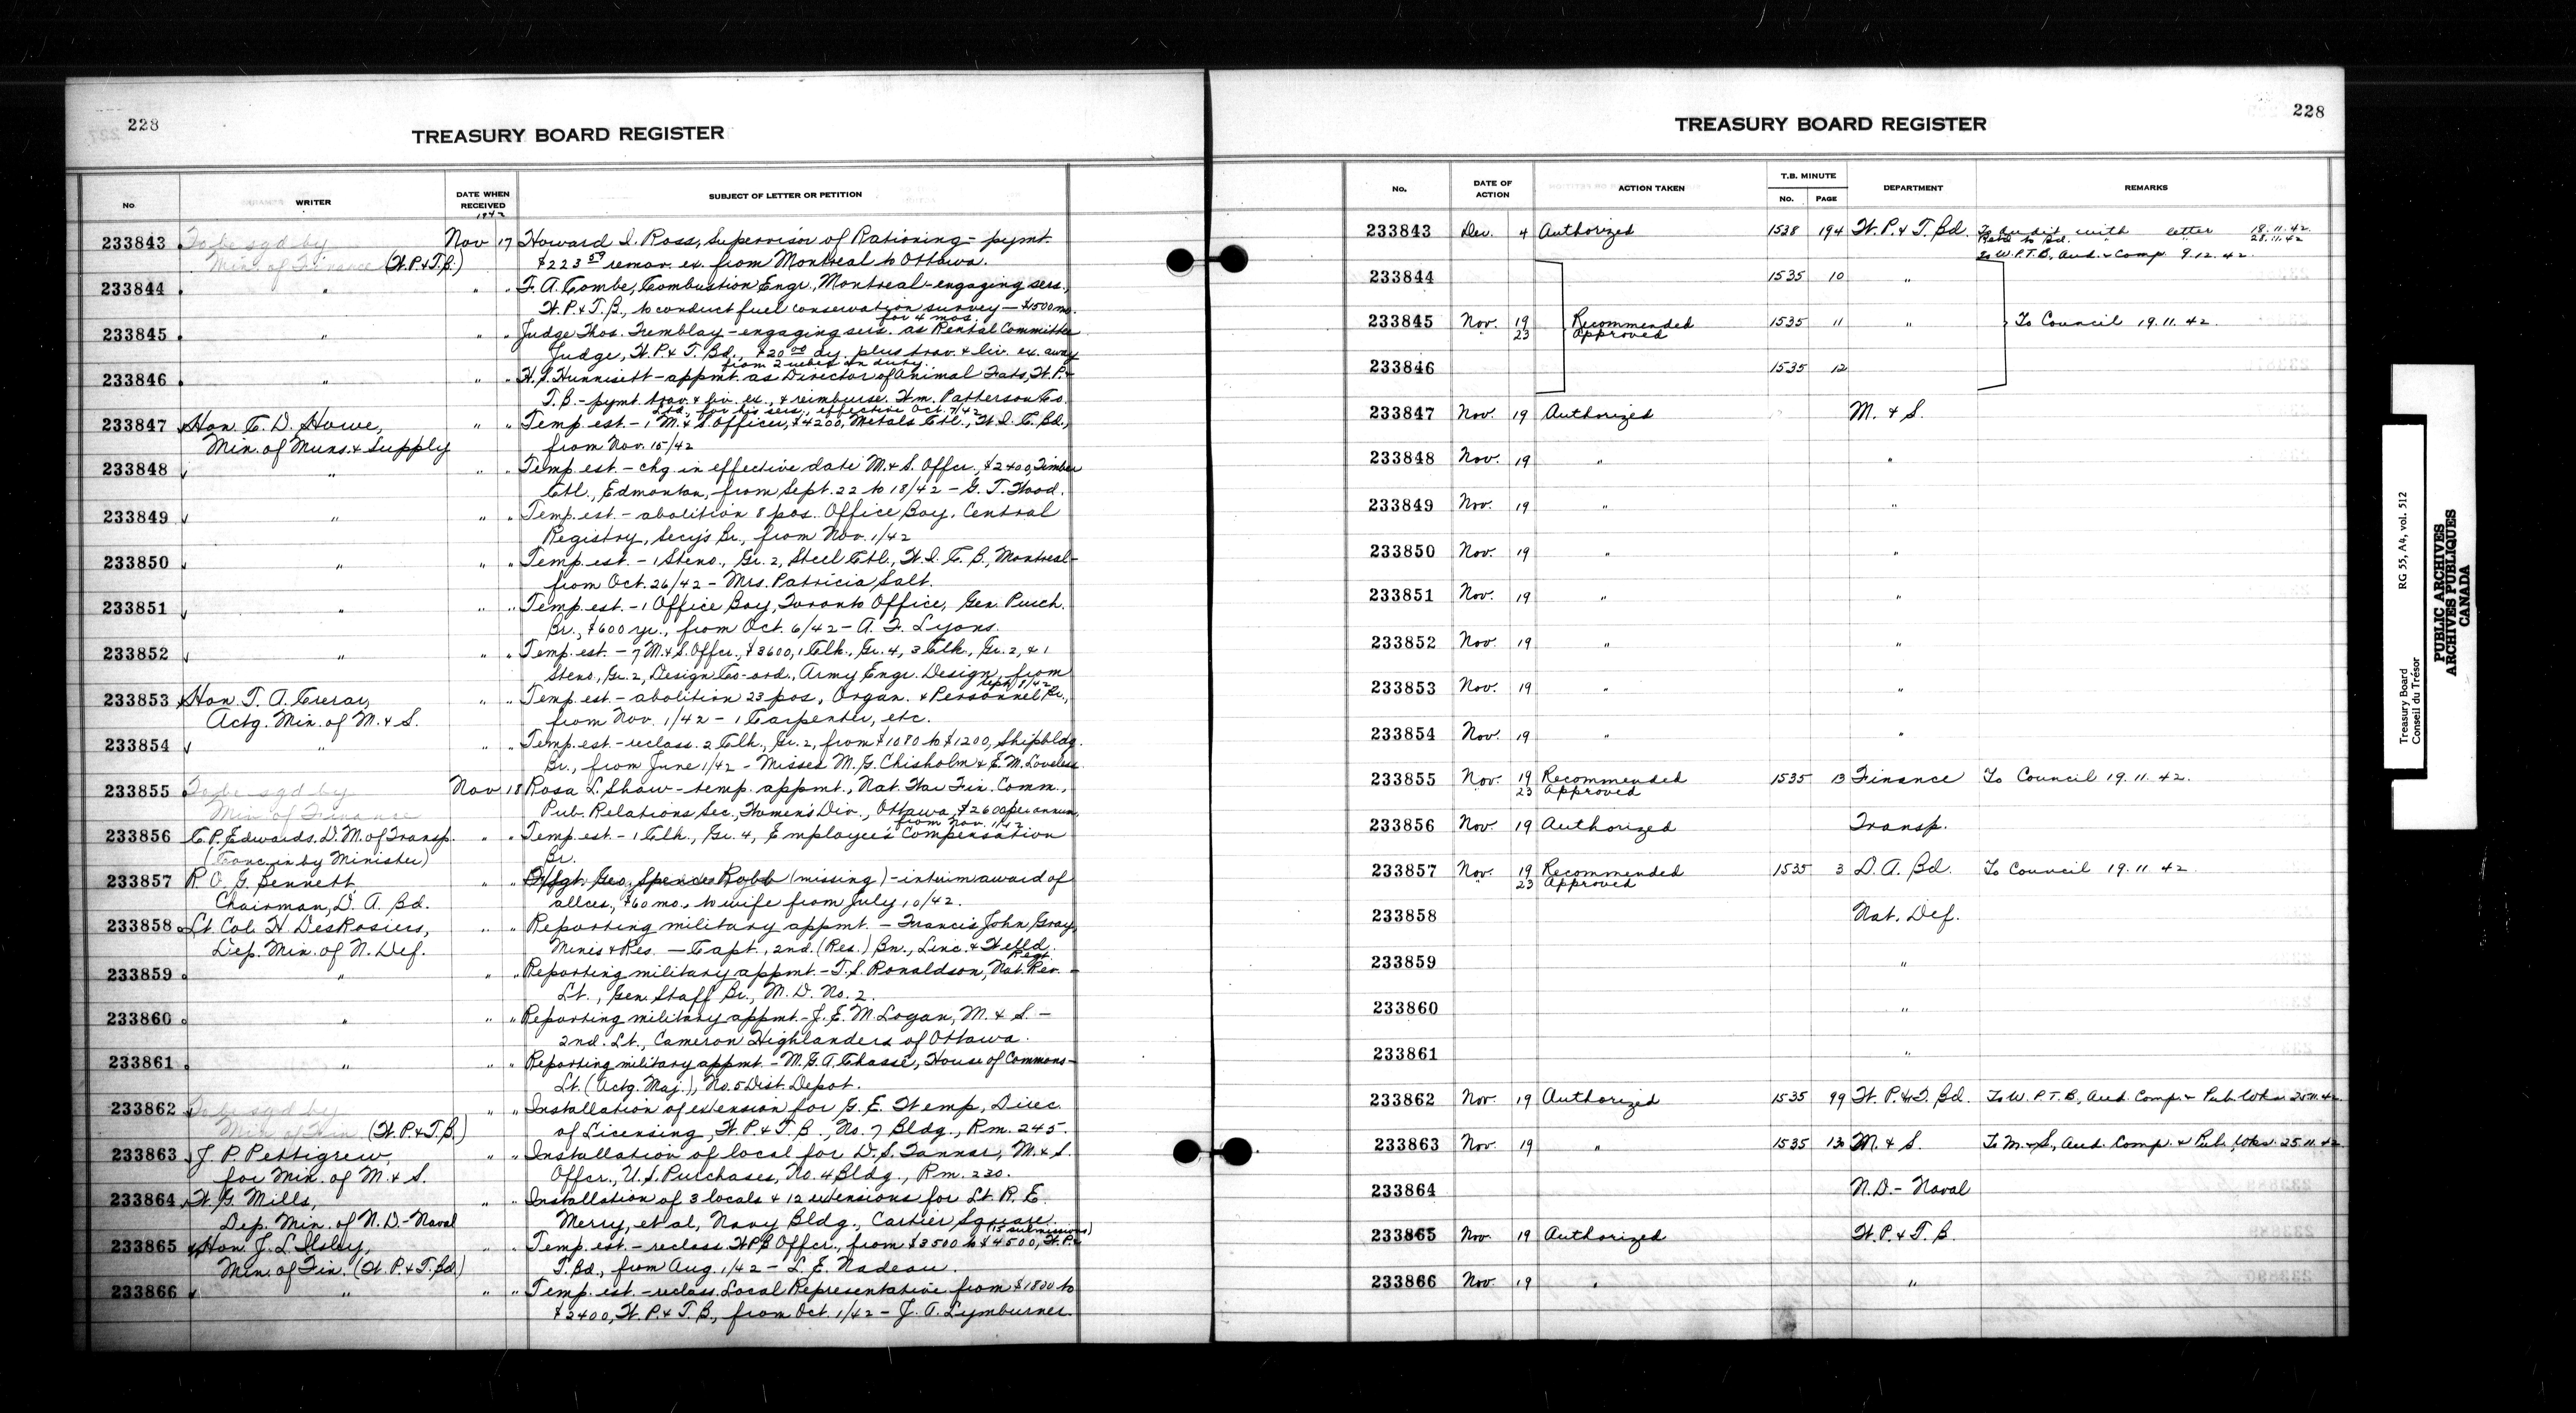 228
TREASURY BOARD REGISTER
No.
WRITER
DATE WHEN RECEIVED
1942
SUBJECT OF LETTER OR PETITION
233843 To be sgd by Nov 17 Howard I. Ross, Supervisor of Rationing - pymt.
Min. of Finance (W.P.& T.B.) $223 59 remov. ex. from Montreal to Ottawa.
233844 " " " F. A. Combe, Combustion Engr., Montreal - engaging sers.,
W.P.& T.B., to conduct fuel conservation survey - $500 mo.
for 4 mos.
233845 " " " Judge Thos. Tremblay - engaging sers. as Rental Committee
Judge, W.P.& T. Bd., $20 00 dy. plus trav. & liv. ex. away
233846 " " " H. S. Hunnisett - appmt. as Director of Animal Fats, W.P.&
T.B. - pymt. trav. & liv. ex., & reimburse. Wm. Patterson Co.
Ltd., for his sers., effective Oct. 7/42
233847 Hon. C. D. Howe, " " Temp. est. - 1 M.& S. Officer, $4200, Metals Ctl., W.I.C. Bd.,
Min. of Muns. & Supply from Nov. 15/42
233848 " " " Temp. est. - chg. in effective date M.& S. Offcr., $2400, Timber
Ctl., Edmonton, from Sept. 22 to 18/42 - G. T. Wood.
233849 " " " Temp. est. - abolition 8 pos. Office Boy, Central
Registry, Secy's Br., from Nov. 1/42
233850 " " " Temp. est. - 1 Steno., Gr. 2, Steel Ctl., W.I.C.B., Montreal -
from Oct. 26/42 - Mrs. Patricia Salt.
233851 " " " Temp. est. - 1 Office Boy, Toronto Office, Gen. Purch.
Br., $600 yr., from Oct. 6/42 - A. F. Lyons.
233852 " " " Temp. est. - 7 M.& S. Offcr., $3600, 1 Clk., Gr. 4, 3 Clk., Gr. 2, & 1
Steno., Gr. 2, Design Co-ord., Army Engr. Design, from
233853 Hon. T. A. Crerar, " " Temp. est. - abolition 23 pos., Organ. & Personnel Br.,
Actg. Min. of M. & S. from Nov. 1/42 - 1 Carpenter, etc.
233854 " " " Temp. est. - reclass. 2 Clk., Gr. 2, from $1080 to $1200, Shipbldg.
Br., from June 1/42 - Misses M. G. Chisholm & E. M. Loveless.
233855 To be sgd by Nov 18 Rosa L. Shaw - temp. appmt., Nat. War Fin. Comm.,
Min of Finance Pub. Relations Sec., Women's Div., Ottawa, $2600 per annum,
from Nov. 1/42
233856 C. P. Edwards, D. M. of Transp. " " Temp. est. - 1 Clk., Gr. 4, Employees Compensation
(Conc. in by Minister) Br.
233857 R. O. G. Bennett, " " Geo. Spence Robb (missing) - interim award of
Chairman, D. A. Bd. allces., $60 mo., to wife from July 10/42.
233858 Lt. Col. H. DesRosiers, " " Reporting military appmt. - Francis John Gray,
Dep. Min. of N. Def. Mines & Res. - Capt., 2nd. (Res.) Bn., Linc. & Welld.
Regt.
233859 " " " Reporting military appmt. - T. S. Ronaldson, Nat. Rev. -
Lt., Gen. Staff Br., M.D. No. 2.
233860 " " " Reporting military appmt. - J. E. M. Logan, M. & S. -
2nd. Lt., Cameron Highlanders of Ottawa.
233861 " " " Reporting military appmt. - M. G. A. Chassé, House of Commons -
Lt. (Actg. Maj.), No. 5 Dist. Depot.
233862 To be sgd by " " Installation of extension for G. E. Wemp, Direc.
Min of Fin (W.P.& T.B.) of Licensing, W.P.& T.B., No. 7 Bldg., Rm. 245.
233863 J. P. Pettigrew, " " Installation of local for D. S. Tannar, M. & S.
for Min. of M. & S. Offcr., U.S. Purchases, No. 4 Bldg., Rm. 230.
233864 W. G. Mills, " " Installation of 3 locals & 12 extensions for Lt. R. E.
Dep. Min. of N.D. - Naval Merry, et al, Navy Bldg., Cartier Square.
(15 submissions)
233865 Hon. J. L. Ilsley, " " Temp. est. - reclass. WPB Offcr., from $3500 to $4500, W.P.&
Min. of Fin. (W.P.& T. Bd.) T. Bd., from Aug. 1/42 - L. E. Nadeau.
233866 " " " Temp. est. - reclass. Local Representative from $1800 to
$2400, W.P.& T.B., from Oct. 1/42 - J. A. Lymburner.
228
TREASURY BOARD REGISTER
No.
DATE OF ACTION
ACTION TAKEN
T.B. MINUTE
No. PAGE
DEPARTMENT
REMARKS
233843 Dec. 4 Authorized 1538 194 W.P.& T. Bd. To Audit with letter 18.11.42.
Retd to Bd. 28.11.42
To W.P.T.B., Aud. & Comp. 9.12.42.
233844 1535 10 "
233845 Nov. 19 Recommended 1535 11 " To Council 19.11.42.
23 Approved
233846 1535 12
233847 Nov. 19 Authorized M. & S.
233848 Nov. 19 " "
233849 Nov. 19 " "
233850 Nov. 19 " "
233851 Nov. 19 " "
233852 Nov. 19 " "
233853 Nov. 19 " "
233854 Nov. 19 " "
233855 Nov. 19 Recommended 1535 13 Finance To Council 19.11.42.
23 Approved
233856 Nov. 19 Authorized Transp.
233857 Nov. 19 Recommended 1535 3 D. A. Bd. To Council 19.11.42
23 Approved
233858 Nat. Def.
233859 "
233860 "
233861 "
233862 Nov. 19 Authorized 1535 99 W.P.& T. Bd. To W.P.T.B., Aud. Comp. & Pub. Wks. 25.11.42
233863 Nov. 19 " 1535 130 M. & S. To M.& S., Aud. Comp. & Pub. Wks. 25.11.42
233864 N.D. - Naval
233865 Nov. 19 Authorized W.P.& T.B.
233866 Nov. 19 " "
Treasury Board
Conseil du Trésor
RG 55, A4, vol. 512
PUBLIC ARCHIVES
ARCHIVES PUBLIQUES
CANADA